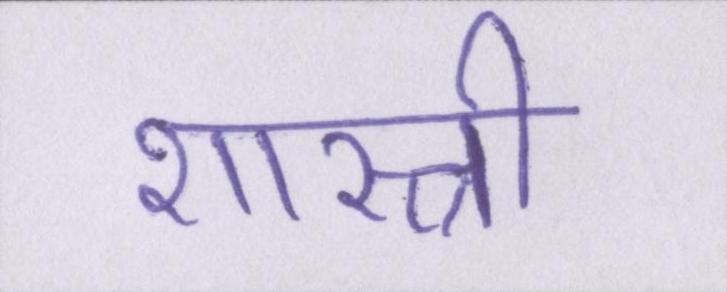 शास्त्री